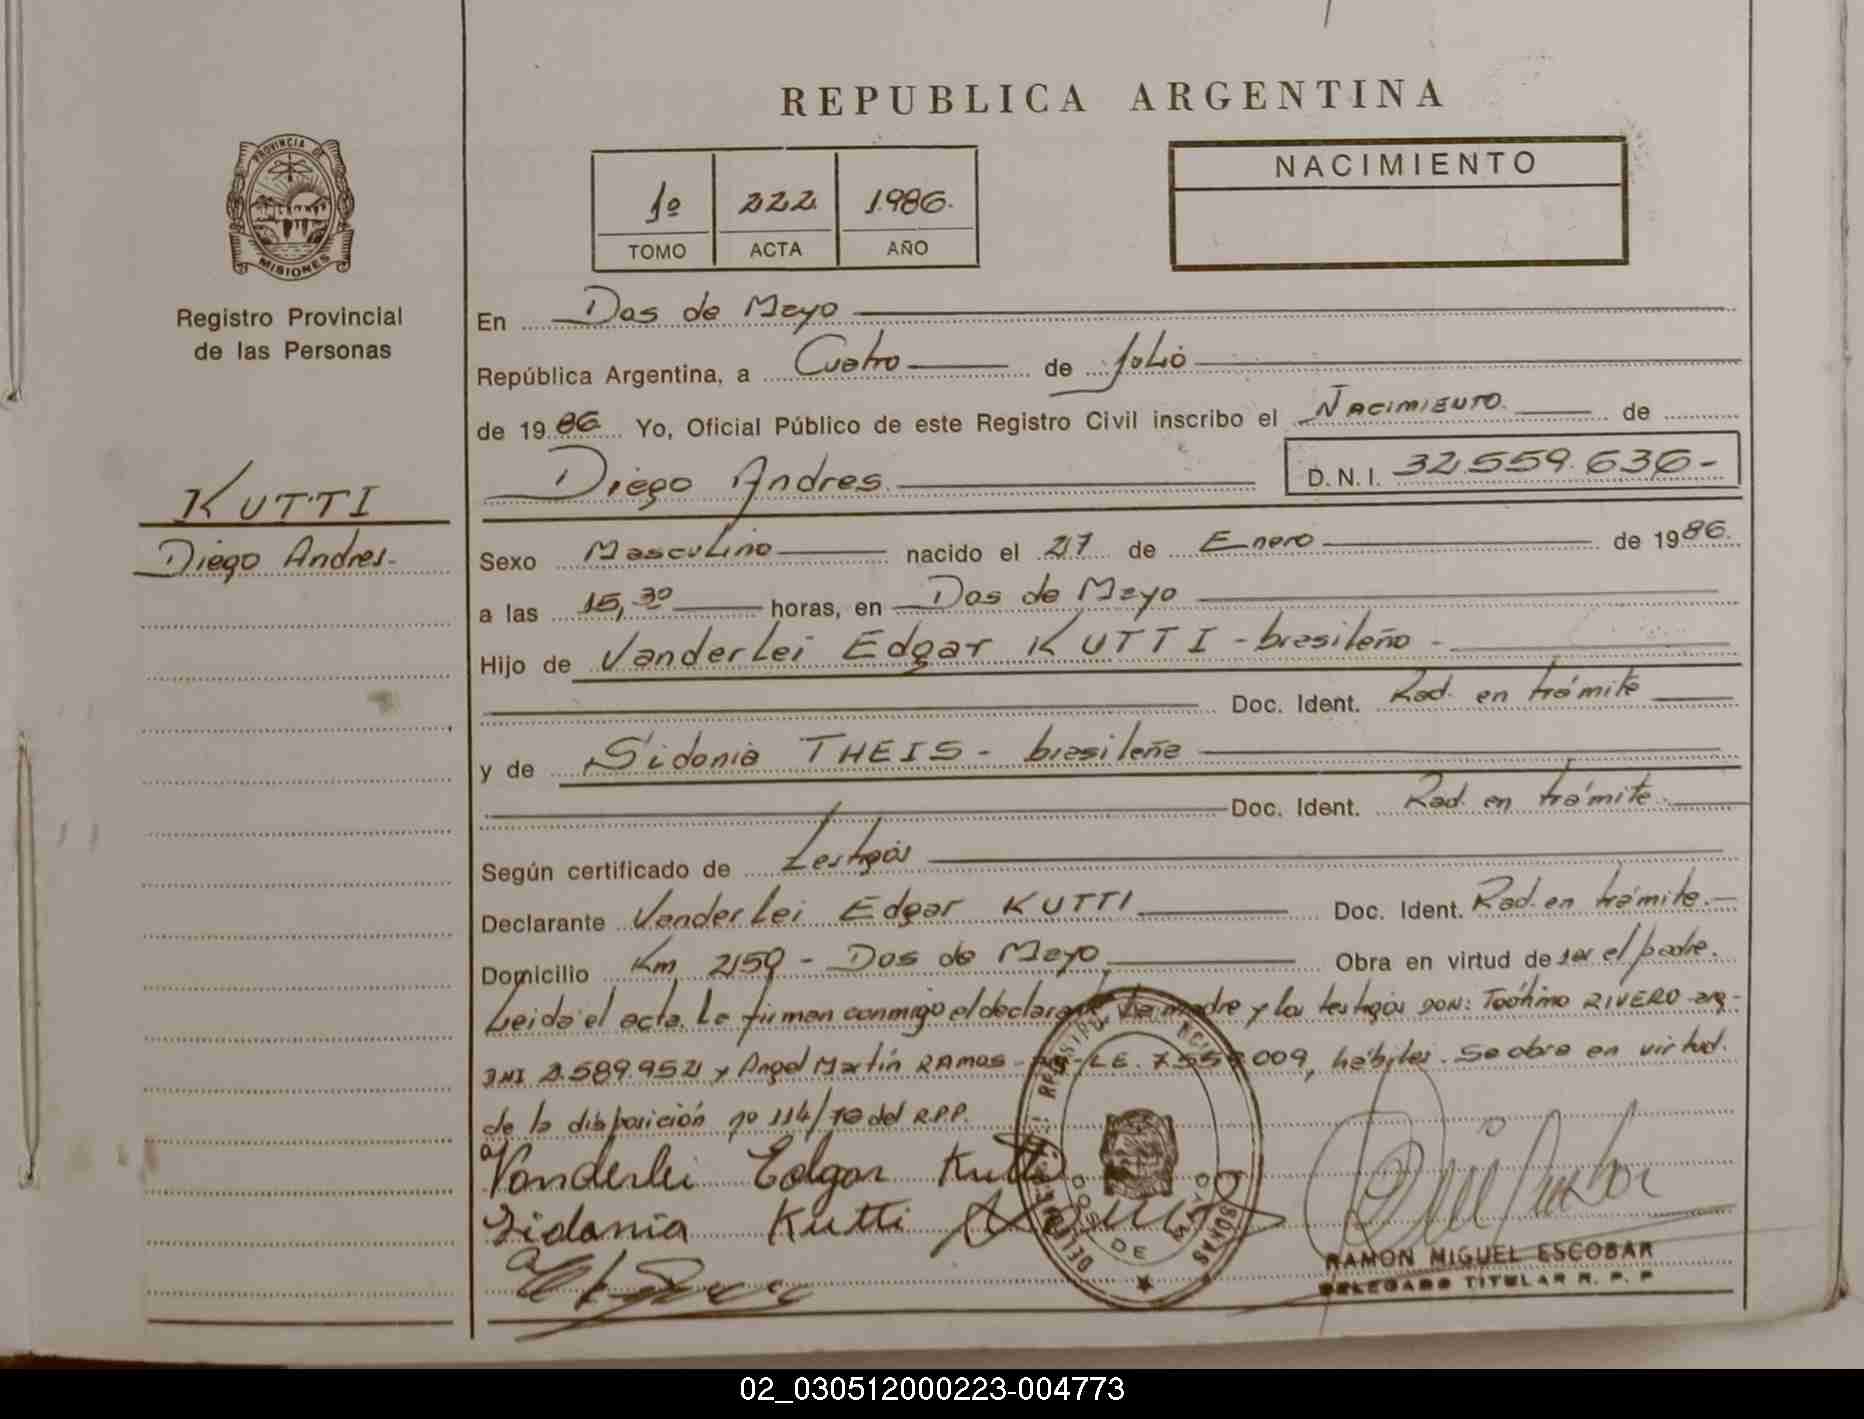 REPUBLICA ARGENTINA
PROVINCIA DE
MISIONES
Registro Provincial
de las Personas
1º 222 1.986.
TOMO ACTA AÑO
NACIMIENTO
En Dos de Mayo
República Argentina, a Cuatro de Julio
de 1986 Yo, Oficial Público de este Registro Civil inscribo el NACIMIENTO de
Diego Andres D.N.I. 32.559.636-
KUTTI
Diego Andres.-
Sexo Masculino nacido el 27 de Enero de 1986.
a las 15,30 horas, en Dos de Mayo
Hijo de Vanderlei Edgar KUTTI - brasileño -
Doc. Ident. Rad. en trámite
y de Sidonia THEIS - brasileña
Doc. Ident. Rad. en trámite.
Según certificado de testigos
Declarante Vanderlei Edgar KUTTI Doc. Ident. Rad. en trámite.-
Domicilio Km 2159 - Dos de Mayo, Obra en virtud de ser el padre.
Leida el acta. La firman conmigo el declarante, la madre y los testigos DON: Teótimo RIVERO - arg-
DNI 2.589.952 y Angel Martín RAMOS - arg - L.E. 7.559.009, hábiles. Se obra en virtud.
de la disposición nº 114/70 del R.P.P.
Vanderlei Edgar Kutti
Sidania Kutti
DOS DE MAYO
RAMON MIGUEL ESCOBAR
DELEGADO TITULAR R. P. P
02_030512000223-004773